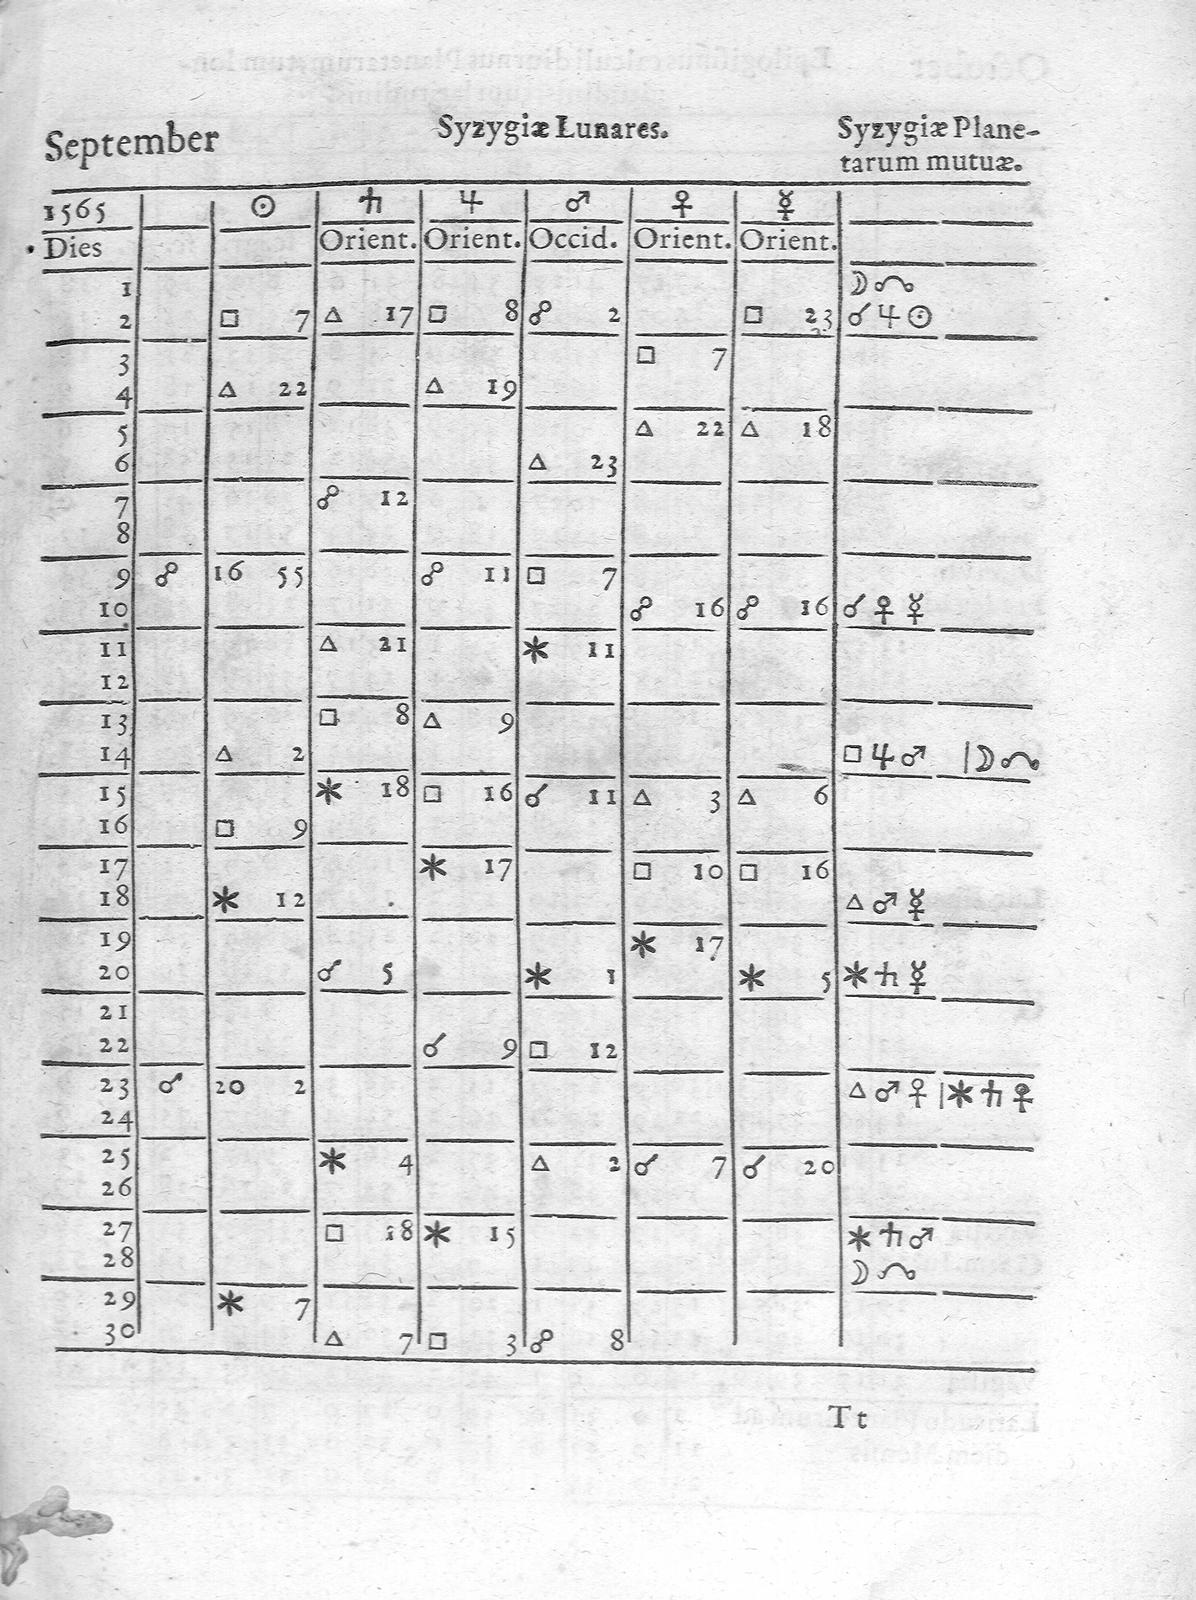 September Syzygiæ Lunares. Syzygiæ Plane-
tarum mutuæ.
1565 ☉ ♄ ♃ ♂ ♀ ☿
Dies Orient. Orient. Occid. Orient. Orient.
1 ☽ ☊
2 □ 7 △ 17 □ 8 ☍ 2 □ 23 ☌ ♃ ☉
3 □ 7
4 △ 22 △ 19
5 △ 22 △ 18
6 △ 23
7 ☍ 12
8
9 ☍ 16 55 ☍ 11 □ 7
10 ☍ 16 ☍ 16 ☌ ♀ ☿
11 △ 21 ⚹ 11
12
13 □ 8 △ 9
14 △ 2 □ ♃ ♂ | ☽ ☊
15 ⚹ 18 □ 16 ☌ 11 △ 3 △ 6
16 □ 9
17 ⚹ 17 □ 10 □ 16
18 ⚹ 12 △ ♂ ☿
19 ⚹ 17
20 ☌ 5 ⚹ 1 ⚹ 5 ⚹ ♄ ☿
21
22 ☌ 9 □ 12
23 ☌ 20 2 △ ♂ ♀ | ⚹ ♄ ♀
24
25 ⚹ 4 △ 2 ☌ 7 ☌ 20
26
27 □ 18 ⚹ 15 ⚹ ♄ ♂
28 ☽ ☊
29 ⚹ 7
30 △ 7 □ 3 ☍ 8
T t